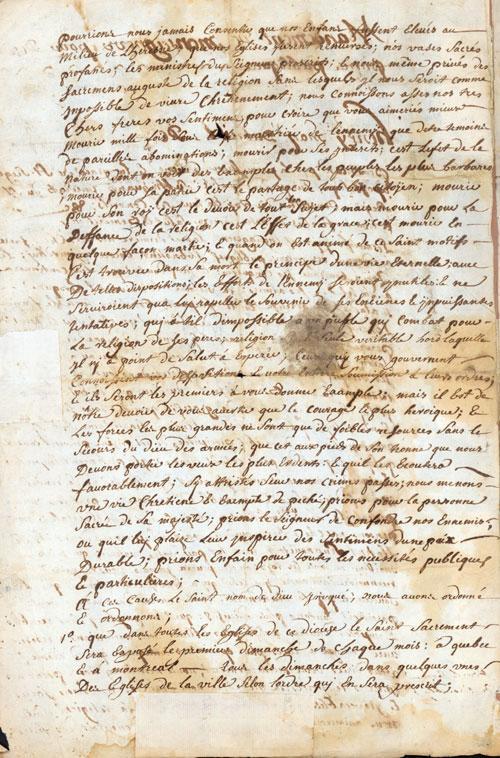 pourrions nous jamais Consentir que nos Enfans fussent Eleués au
Milieu de Lheresie nos Eglises fussent ; nos vases Sacrés
profanés ; les ministres du Seigneur proscrits ; & nous même privés des
Sacremens auguste de la religion Sans lesquels il nous Seroit comme
impossible de viure Chretienement ; nous Connoissons assés nos tres
Chers freres vos Sentimens pour Croire que vous aimeriés mieux
Mourir mille fois que detre temoins
de pareilles abominations ; mourir pour Ses interets ; cest leffet de la
Nature dont on voit des Exemples chez les peuples les plus barbares
mourir pour la patrie cest le partage de tout bon citoyen ; mourir
pour Son roy cest le devoir de tout Sujet ; mais mourir pour la
Deffance de la religion cest Leffet de la grace ; cest mourir En
quelque façon martir ; & quand on Est animé de ce Saint motif
Cest trouver dans Sa mort le principe dune vie Eternelle ; avec
De telles dispositions ; les Efforts de lennemy Seront & ne
Serviroient qua leur rapeller le Souvenir de Ses anciennes & impuissantes
tentatives ; qui a til dimpossible a un peuple qui Combat pour
La religion de Ses peres religion Seule veritable hors laquelle
Il ny a point de Salut a Esperer ; Ceux qui vous gouvernent
Connoissent vos dispositions & votre Soumission a leurs ordres
& ils Seront les premiers a vous donner Lexample ; mais il Est de
notre devoir de vous avertir que le courage le plus heroique ; &
Les forces les plus grandes ne Sont que de foibles resources Sans le
Secours du Dieu des armées ; que cest aux pieds de Son trône que nous
Devons porter les veux les plus Ardents & quil les Ecoutera
favorablement ; Sy nos Crimes passés ; nous menons
vne vie Chretiene & Exempte de peché ; prions pour la personne
Sacrée de Sa majesté ; prions le Seigneur de Confondre nos Ennemis
ou quil luy plaise Leur inspirer des Sentimens dune paix
Durable ; prions Enfain pour toutes les necessités publiques
& particulieres ;
A ces Causes Le Saint nom de Dieu ; nous avons ordonné
& ordonnons ;
1° que dans toutes les Eglises de ce diocese le Saint Sacrement
Sera Exposé le premier dimanche de Chaque mois : a quebec
& a montreal tous les dimanches dans quelques unes
Des Eglises de la ville Selon lordre qui en Sera prescrit ;